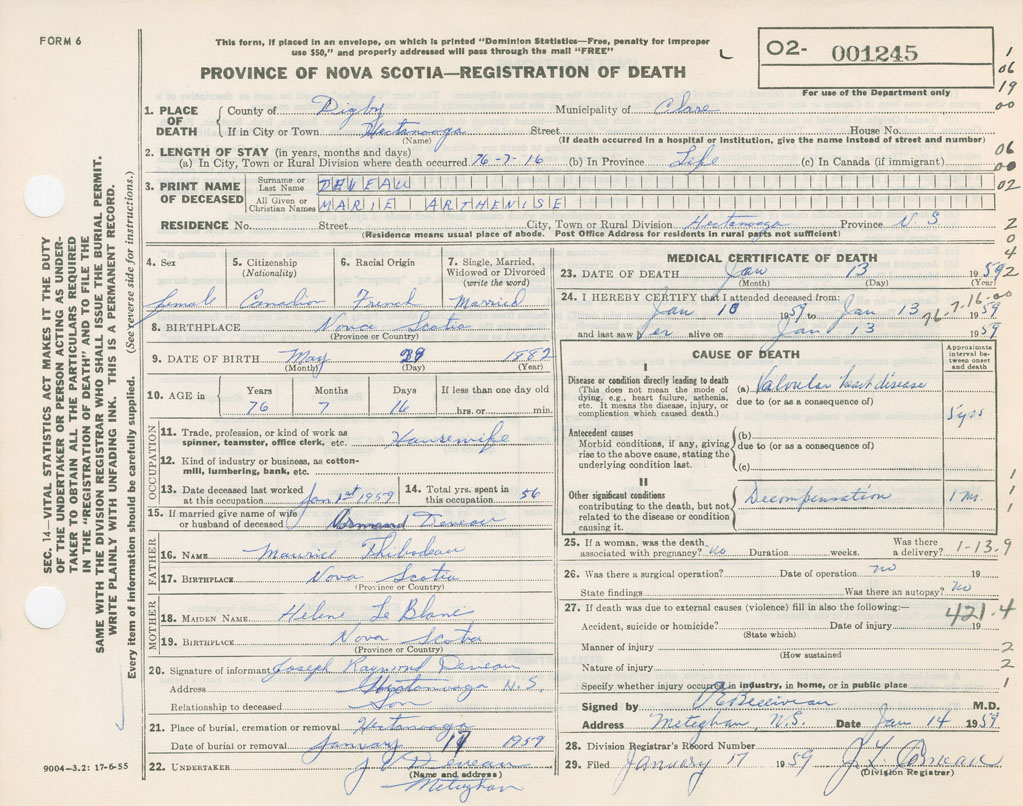 FORM 6
This form, if placed in an envelope, on which is printed "Dominion Statistics—Free, penalty for improper
use $50," and properly addressed will pass through the mail "FREE"
PROVINCE OF NOVA SCOTIA—REGISTRATION OF DEATH
O2- 001245
For use of the Department only
1
06
19
00
06
00
02
2
0
0
4
2
SEC. 14—VITAL STATISTICS ACT MAKES IT THE DUTY
OF THE UNDERTAKER OR PERSON ACTING AS UNDER-
TAKER TO OBTAIN ALL THE PARTICULARS REQUIRED
IN THE "REGISTRATION OF DEATH" AND TO FILE THE
SAME WITH THE DIVISION REGISTRAR WHO SHALL ISSUE THE BURIAL PERMIT.
WRITE PLAINLY WITH UNFADING INK. THIS IS A PERMANENT RECORD.
Every item of information should be carefully supplied. (See reverse side for instructions.)
1. PLACE OF DEATH
County of Digby Municipality of Clare
If in City or Town Hectanooga Street House No.
(Name) (If death occurred in a hospital or institution, give the name instead of street and number)
2. LENGTH OF STAY (in years, months and days)
(a) In City, Town or Rural Division where death occurred 76-7-16 (b) In Province Life (c) In Canada (if immigrant)
3. PRINT NAME OF DECEASED
Surname or Last Name DEVEAU
All Given or Christian Names MARIE ARTHENISE
RESIDENCE No. Street City, Town or Rural Division Hectanooga Province N S
(Residence means usual place of abode. Post Office Address for residents in rural parts not sufficient)
4. Sex
female
5. Citizenship (Nationality)
Canadian
6. Racial Origin
French
7. Single, Married, Widowed or Divorced (write the word)
Married
8. BIRTHPLACE Nova Scotia
(Province or Country)
9. DATE OF BIRTH May 29 1882
(Month) (Day) (Year)
10. AGE in
Years Months Days If less than one day old
76 7 16 hrs. or min.
OCCUPATION
11. Trade, profession, or kind of work as
spinner, teamster, office clerk, etc. Housewife
12. Kind of industry or business, as cotton-
mill, lumbering, bank, etc.
13. Date deceased last worked
at this occupation Jan 1st 1959
14. Total yrs. spent in
this occupation 56
15. If married give name of wife
or husband of deceased Armand Deveau
FATHER
16. NAME Maurice Thibodeau
17. BIRTHPLACE Nova Scotia
(Province or Country)
MOTHER
18. MAIDEN NAME Helene Le Blanc
19. BIRTHPLACE Nova Scotia
(Province or Country)
20. Signature of informant Joseph Raymond Deveau
Address Hectanooga N.S.
Relationship to deceased Son
21. Place of burial, cremation or removal Hectanooga
Date of burial or removal January 17 1959
22. UNDERTAKER J V Deveau
(Name and address)
Meteghan
9004—3.2: 17-6-55
MEDICAL CERTIFICATE OF DEATH
23. DATE OF DEATH Jan 13 1959
(Month) (Day) (Year)
24. I HEREBY CERTIFY that I attended deceased from:
Jan 10 1959 to Jan 13 1959
76-7-16-00
and last saw her alive on Jan 13 1959
CAUSE OF DEATH
Approximate interval between onset and death
I
Disease or condition directly leading to death
(This does not mean the mode of
dying, e.g., heart failure, asthenia,
etc. It means the disease, injury, or
complication which caused death.)
(a) Valvular heart disease
due to (or as a consequence of)
5 yrs
Antecedent causes
Morbid conditions, if any, giving
rise to the above cause, stating the
underlying condition last.
(b)
due to (or as a consequence of)
(c)
II
Other significant conditions
contributing to the death, but not
related to the disease or condition
causing it.
Decompensation
1 m.
1
1
1
25. If a woman, was the death
associated with pregnancy? no Duration weeks. Was there a delivery? 1-13.9
26. Was there a surgical operation? no Date of operation 19
State findings Was there an autopsy? no
27. If death was due to external causes (violence) fill in also the following:—
421.4
Accident, suicide or homicide? Date of injury 19
(State which)
Manner of injury 2
(How sustained
Nature of injury 2
Specify whether injury occurred in industry, in home, or in public place 1
Signed by Belliveau M.D.
Address Meteghan, N.S. Date Jan 14 1959
28. Division Registrar's Record Number
29. Filed January 17 1959 J L Comeau
(Division Registrar)